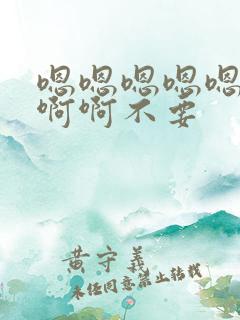 嗯嗯嗯嗯嗯
啊啊不要
黄守义
未经同意禁止转载